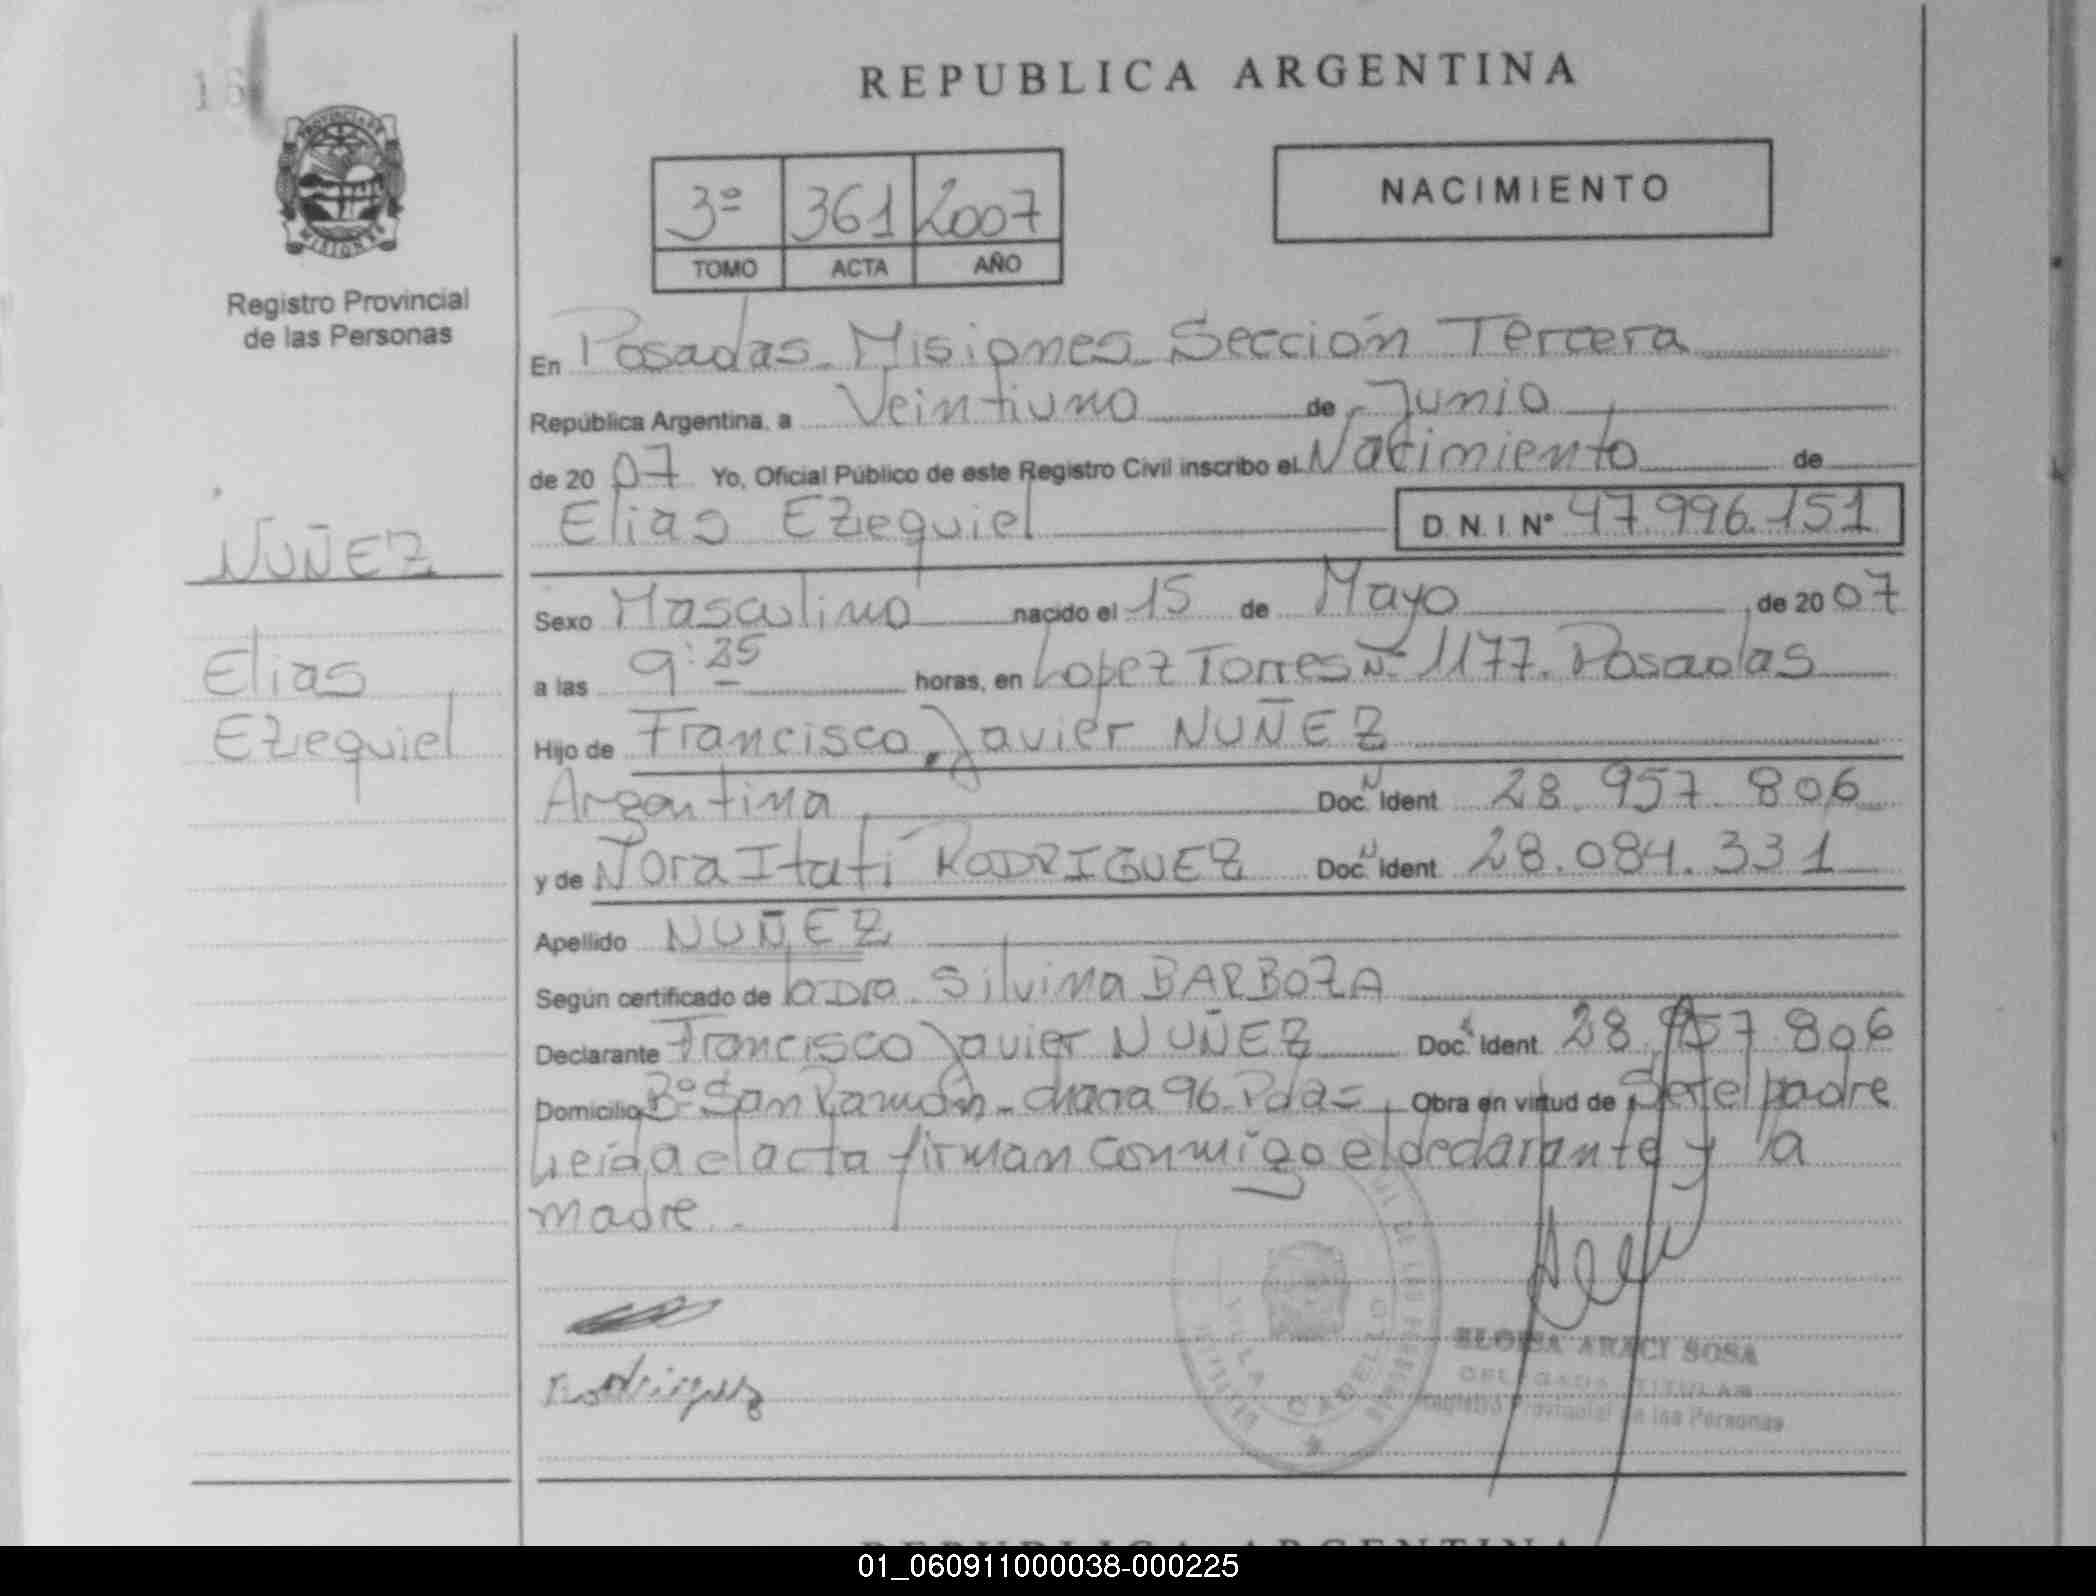 REPUBLICA ARGENTINA
16
PROVINCIA DE
MISIONES
Registro Provincial
de las Personas
3º 361 2007
TOMO ACTA AÑO
NACIMIENTO
En Posadas - Misiones - Sección Tercera
República Argentina, a Veintiuno de Junio
de 20 07 Yo, Oficial Público de este Registro Civil inscribo el Nacimiento de
Elias Ezequiel D.N.I. Nº 47.996.151
NUÑEZ
Elias
Ezequiel
Sexo Masculino nacido el 15 de Mayo de 20 07
a las 9:35 horas, en Lopez Torres Nº 1177. Posadas
Hijo de Francisco Javier NUÑEZ
Argentina Doc. Ident 28.957.806
y de Nora Itatí RODRIGUEZ Doc. Ident 28.084.331
Apellido NUÑEZ
Según certificado de la Dra. Silvina BARBOZA
Declarante Francisco Javier NUÑEZ Doc. Ident. 28.957.806
Domicilio Bº San Ramón - chacra 96 - Pdas Obra en virtud de Ser el padre
Leída el acta firman conmigo el declarante y la
madre.
Rodriguez
VILLA CABELLO
ELOISA ARACI SOSA
DELEGADA TITULAR
Registro Provincial de las Personas
REPUBLICA ARGENTINA
01_060911000038-000225